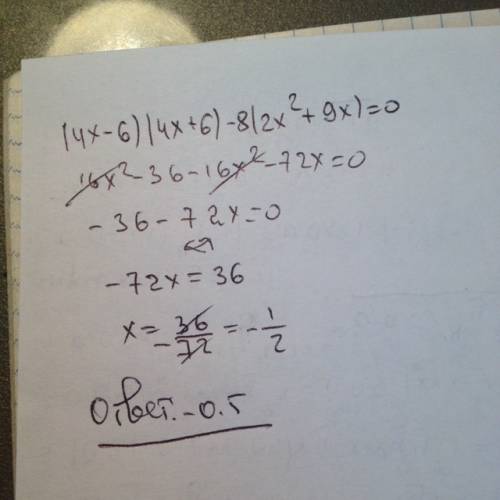 (4x-6)(4x+6)-8(2x²+9x)=0
16x²-36-16x²-72x=0
-36-72x=0
-72x=36
x=-36/72=-1/2
Ответ.-0.5